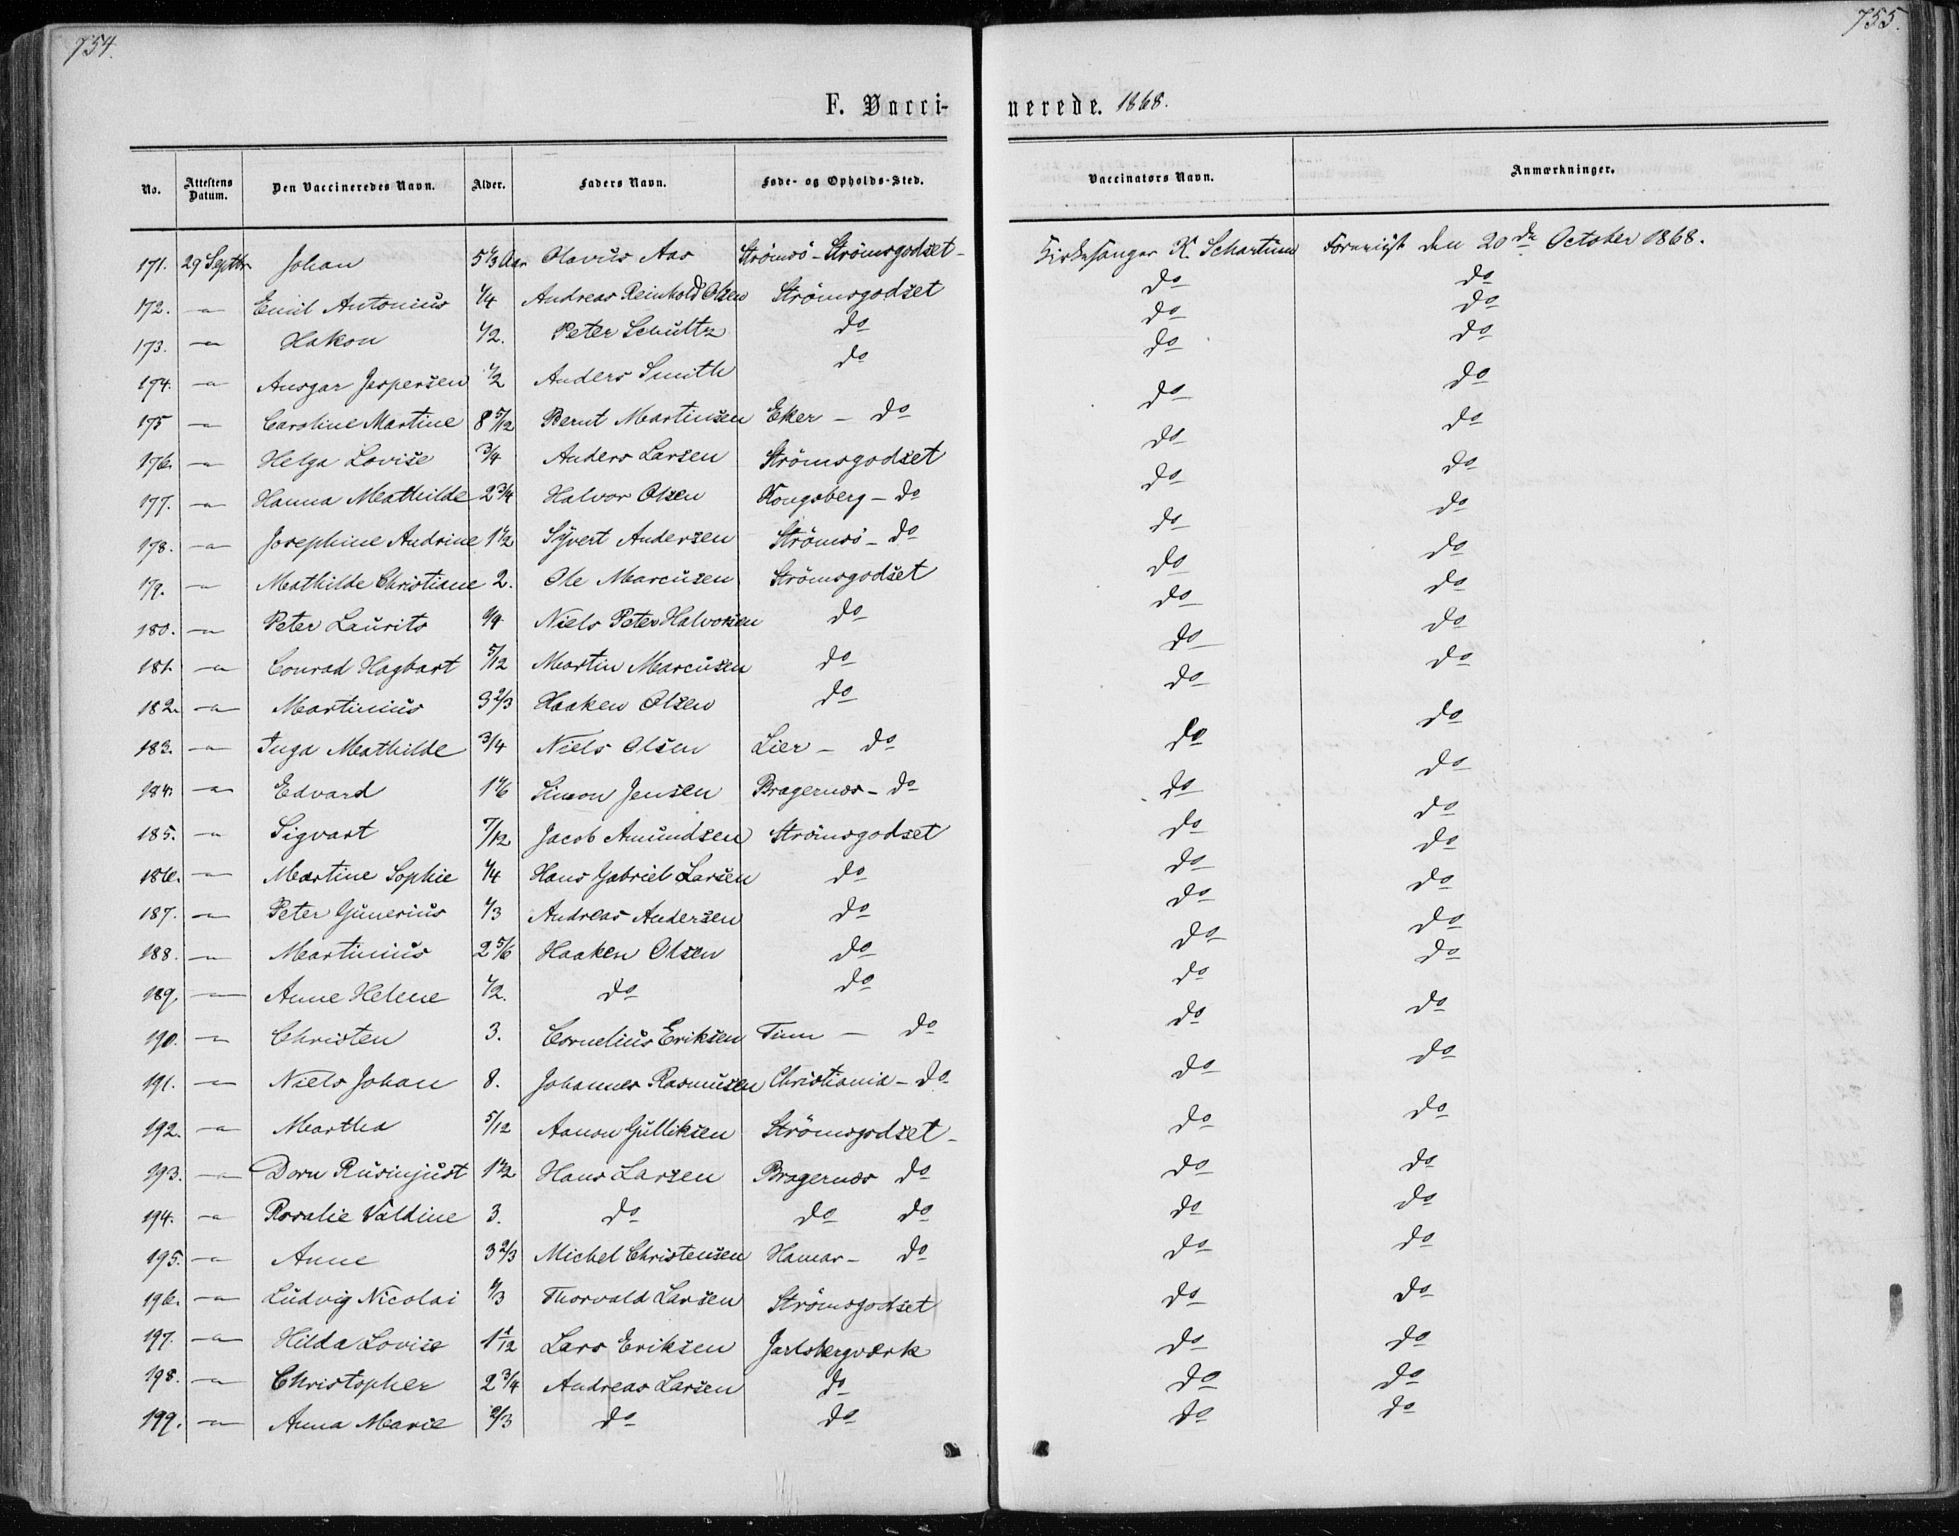 754.
755.
F. Vacci-
nerede. 1868.
No. Attestens Datum. Den Vaccineredes Navn. Alder. Faders Navn. Føde- og Opholds-Sted. Vaccinators Navn. Anmærkninger.
171. 29 Septbr Johan 5 1/3 Aar Olavus Aas Strömsö - Strömsgodset - Kirkesanger K. Schartum Forevist den 20de October 1868.
172. — Emil Antonius 1/4 Andreas Reinhold Olsen Strömsgodset do do
173. — Hakon 1/2. Peter Schultz do do do
174. — Ansgar Jespersen 1/2 Anders Smith do do do
175 — Caroline Martine 8 5/12 Bernt Martinsen Eker - do do do
176. — Helga Lovise 3/4 Anders Larsen Strömsgodset do do
177. — Hanna Mathilde 2 3/4 Halvor Olsen Kongsberg - do do do
178. — Josephine Andrine 1 1/2 Syvert Andersen Strömsö - do do do
179. — Mathilde Christiane 2. Ole Marcusen Strömsgodset do do
180. — Peter Laurits 1/4 Niels Peter Halvorsen do do do
181. — Conrad Hagbart 5/12 Martin Marcusen do do do
182. — Martinius 3 2/3 Haaken Olsen do do do
183. — Inga Mathilde 3/4 Niels Olsen Lier - do do do
184. — Edvard 1 1/6 Simon Jensen Bragernæs - do do do
185. — Sigvart 7/12 Jacob Amundsen Strömsgodset do do
186. — Martine Sophie 1/4 Hans Gabriel Larsen do do do
187. — Peter Gunerius 1/3 Andreas Andersen do do do
188. — Martinius 2 5/6 Haaken Olsen do do do
189. — Anne Helene 1/2. do do do do
190. — Christen 3. Cornelius Eriksen Tinn — do do do
191. — Niels Johan 8. Johannes Rasmusen Christiania - do do do
192. — Martha 5/12 Aanon Gulliksen Strömsgodset - do do
193. — Dorn Rusinjust 1 1/2 Hans Larsen Bragernæs do do do
194. — Rosalie Valdine 3. do do do do do
195. — Anne 3 2/3 Michel Christensen Hamar - do do do
196. — Ludvig Nicolai 1/3 Thorvald Larsen Strömsgodset do do
197. — Hilda Lovise 1 1/12 Lars Eriksen Jarlsbergværk do do
198. — Christopher 2 3/4 Andreas Larsen do do do
199. — Anna Marie 2/3 do do do do